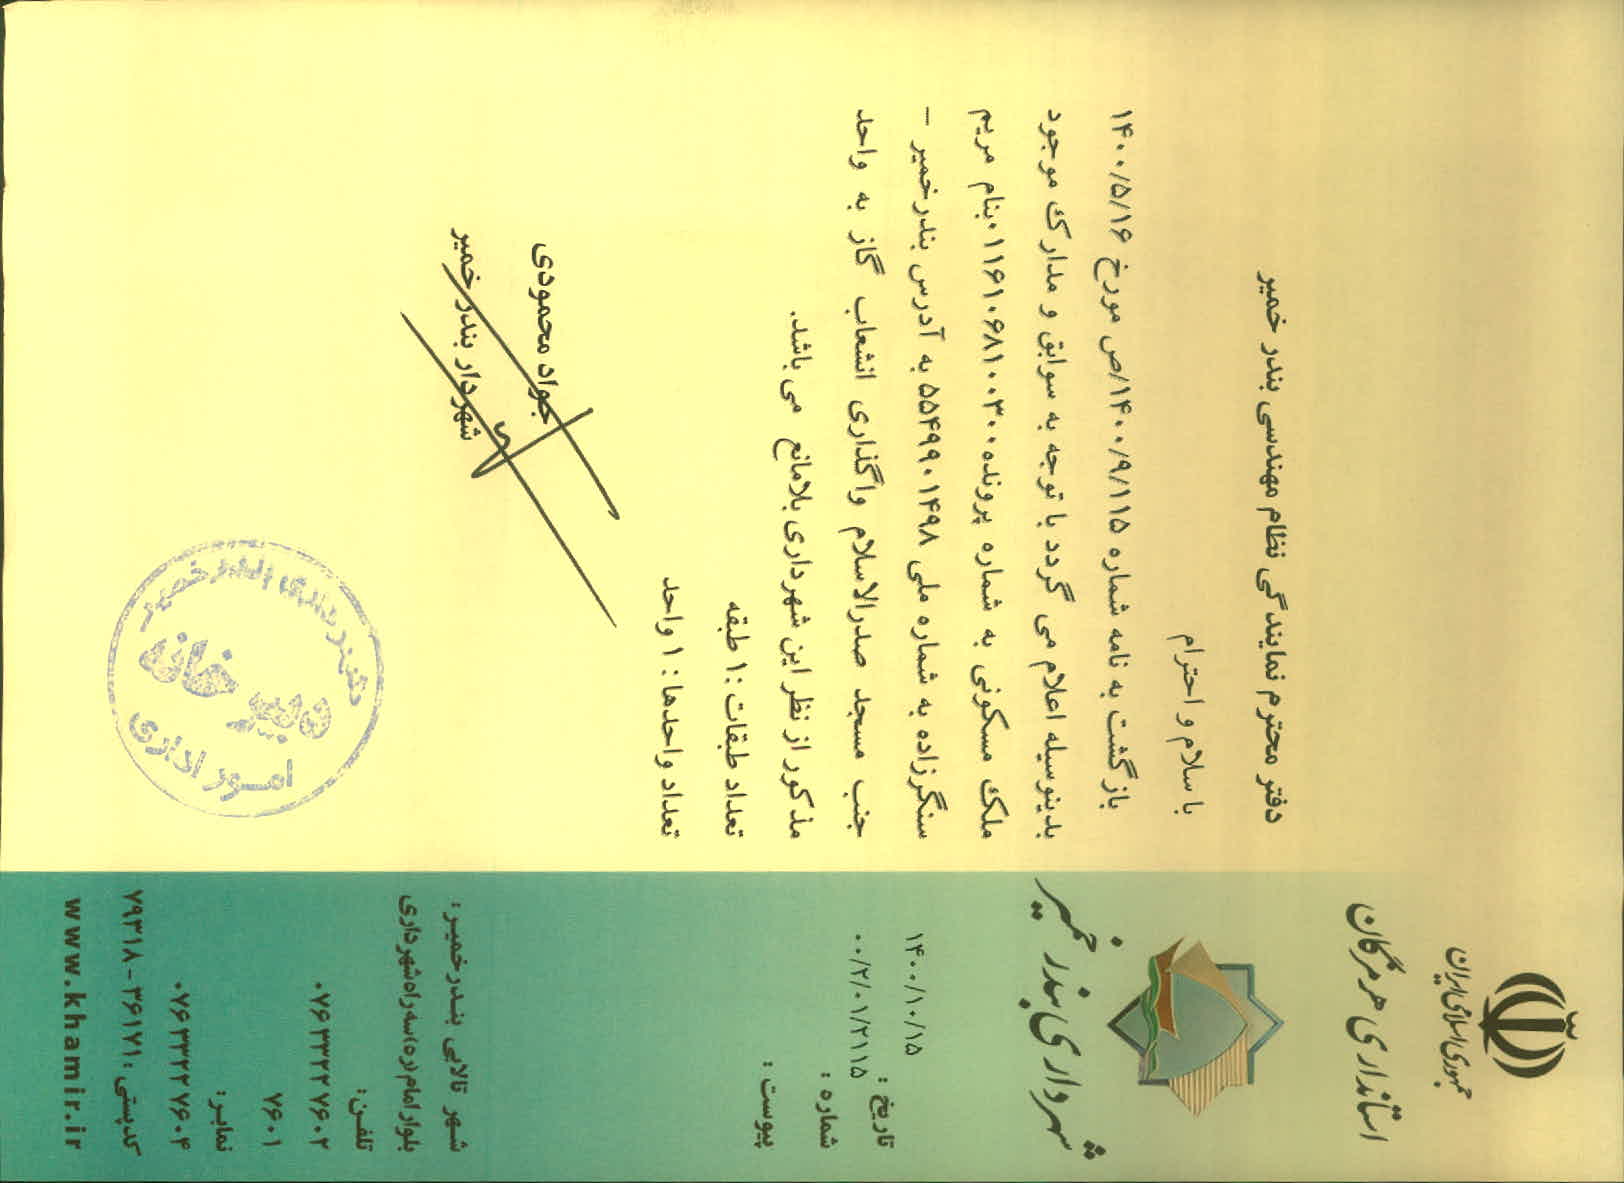 جمهوری اسلامی ایران
استانداری هرمزگان
شهرداری بندر خمیر
تاریخ : ۱۴۰۰/۱۰/۱۵
شماره : ۰۰/۲/۰۱/۲۱۱۵
پیوست :
دفتر محترم نمایندگی نظام مهندسی بندر خمیر
با سلام و احترام
بازگشت به نامه شماره ۱۴۰۰/۹/۱۱۵/ص مورخ ۱۴۰۰/۵/۱۶
بدینوسیله اعلام می گردد با توجه به سوابق و مدارک موجود
ملک مسکونی به شماره پرونده ۰۱۱۶۱۰۶۸۱۰۰۳۰۰ بنام مریم
سنگرزاده به شماره ملی ۵۵۴۹۹۰۱۴۹۸ به آدرس بندرخمیر –
جنب مسجد صدرالاسلام واگذاری انشعاب گاز به واحد
مذکور از نظر این شهرداری بلامانع می باشد.
تعداد طبقات : ۱ طبقه
تعداد واحدها : ۱ واحد
جواد محمودی
شهردار بندر خمیر
شهرداری بندر خمیر
دبیرخانه
امور اداری
شهر تالابی بندرخمیر :
بلوار امام (ره) سه راه شهرداری
تلفن:
۰۷۶۳۳۲۲۷۶۰۲
۷۶۰۱
نمابر:
۰۷۶۳۳۲۲۷۶۰۴
کدپستی : ۳۶۱۷۱ - ۷۹۳۱۸
www.khamir.ir